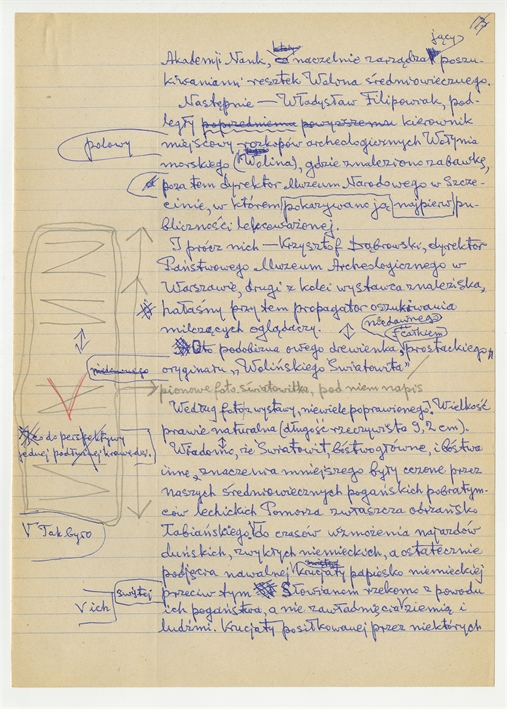 jący
Akademji Nauk, naczelnie zarządza poszu-
kiwaniami resztek Wolina średniowiecznego.
Następnie — Władysław Filipowiak, pod-
legły poprzedniemu powyższemu kierownik
polowy
miejscowy rozkopów archeologicznych Wolynia
morskiego (Wolina), gdzie znaleziono zabawkę,
poza tem dyrektor Muzeum Narodowego w Szcze-
cinie, w którem pokazywano ją najpierw pu-
bliczności lekceważonej.
I prócz nich — Krzysztof Dąbrowski, dyrektor
Państwowego Muzeum Archeologicznego w
Warszawie, drugi z kolei wystawca znaleziska,
hałaśny przytem propagator oszukiwania
milczących oglądaczy.
niedawnego
całkiem
Oto podobizna owego drewienka, prostackiego,
oryginału „Wolińskiego Światowita"
pionowe foto światowitka, pod niem napis
Według foto z wystawy, niewiele poprawionego. Wielkość
prawie naturalna (długość rzeczywista 9,2 cm).
co do perspektywy
jednej podłużnej krawędzi.
Wiadomo, że Światowit, bóstwo główne, i bóstwa
inne, znaczenia mniejszego były czczone przez
naszych średniowiecznych pogańskich pobratym-
ców lechickich Pomorza zwłaszcza odrzańsko
V Tak było
łabiańskiego V do czasów wzmożenia najazdów
duńskich, zwykłych niemieckich, a ostatecznie
podjęcia nawalnej krucjaty papiesko niemieckiej
świętej
przeciw tym Słowianom rzekomo z powodu
V ich
ich pogaństwa, a nie zawładnięcia V ziemią i
ludźmi. Krucjaty posiłkowanej przez niektórych